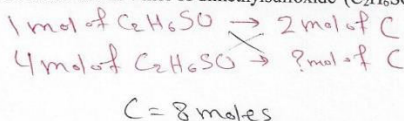 dimethylsulfoxide (C2H6S
1 mol of C2H6SO → 2 mol of C
4 mol of C2H6SO → ? mol of C
C = 8 moles